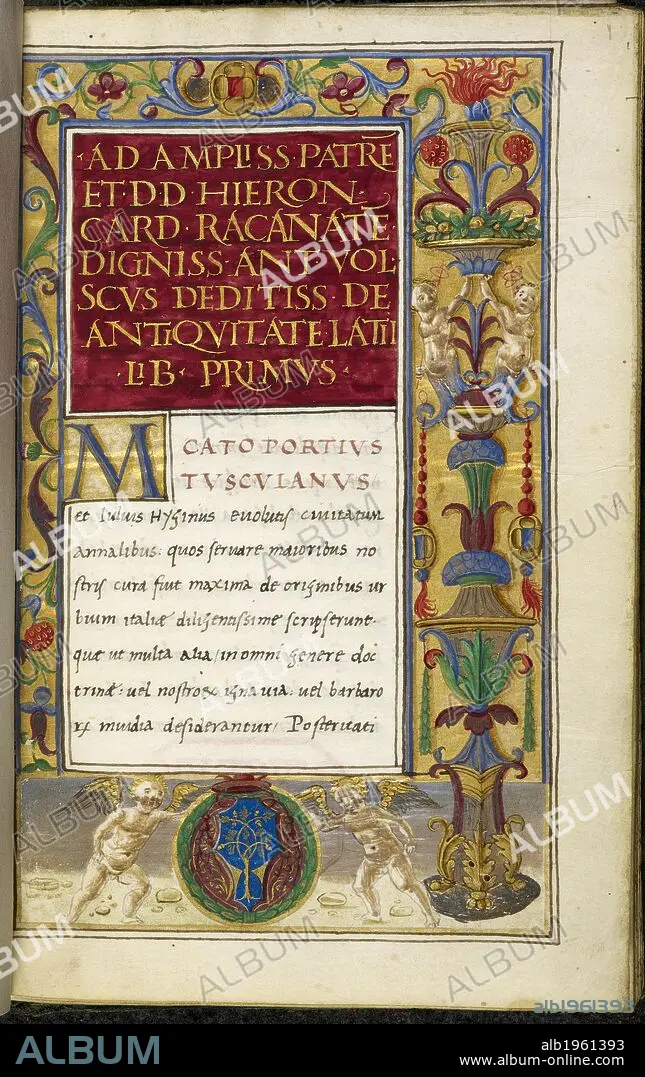 ·AD AMPLISS·PATRĒ
ET·DD·HIERON·
CARD·RACANATĒ·
DIGNISS·ANT·VOL·
SCVS DEDITISS·DE
ANTIQVITATE LATII
·LIB·PRIMVS·
M
CATO PORTIVS
TVSCVLANVS
et Iulius Hyginus evolutis civitatum
annalibus: quos servare maioribus no
stris cura fuit maxima de originibus ur
bium italiæ diligentissime scripserunt·
quæ ut multa alia, in omni genere doc
trinæ: vel nostroꝝ ignavia: vel barbaro
ꝝ invidia desiderantur, Posteritati
ALBUM
alb1961393
alb1961393
www.album-online.com